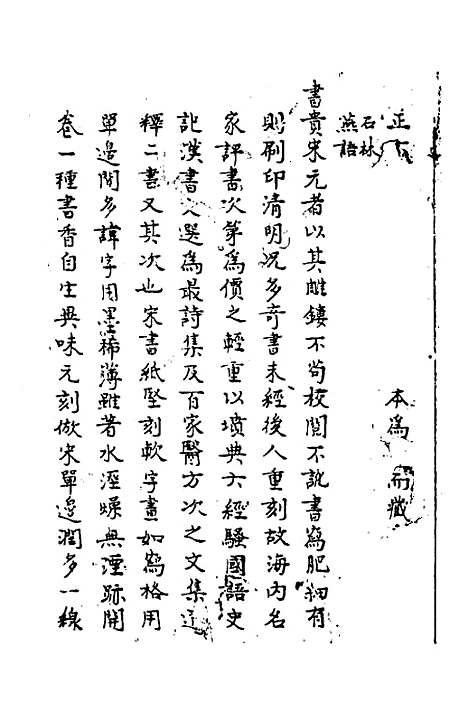 正
石林
燕語
本爲
藏
書貴宋元者以其雕鏤不苟校閱不訛書寫肥細有
則刷印清明況多奇書未經後人重刻故海内名
家評書次第爲價之輕重以墳典六經騷國語史
記漢書文選爲最詩集及百家醫方次之文集道
釋二書又其次也宋書紙堅刻軟字畫如寫格用
單邊間多諱字用墨稀薄雖著水溼燥無湮跡開
卷一種書香自生異味元刻倣宋單邊濶多一線